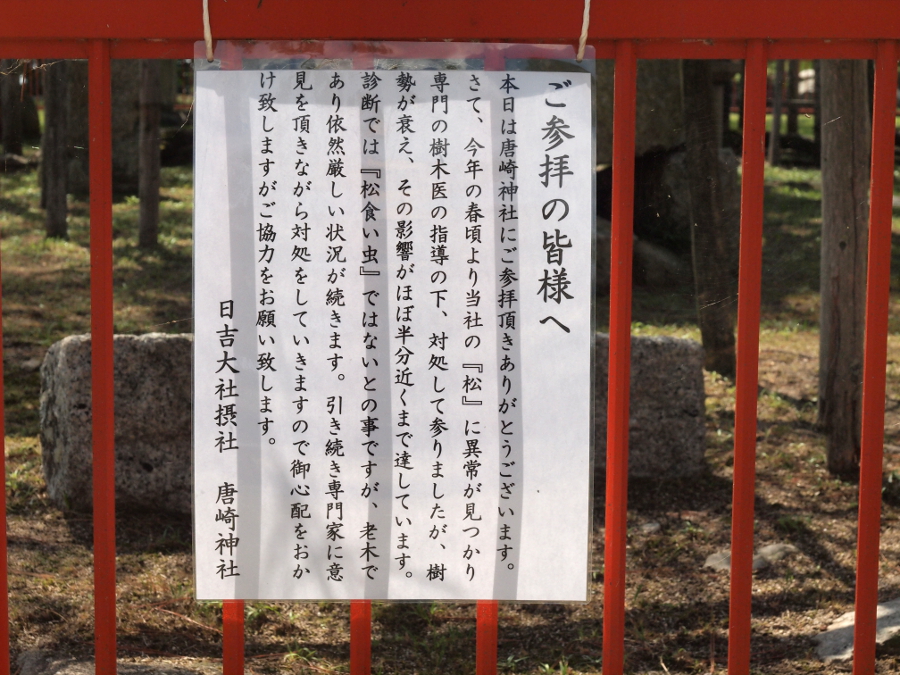 ご参拝の皆様へ
本日は唐崎神社にご参拝頂きありがとうございます。
さて、今年の春頃より当社の『松』に異常が見つかり
専門の樹木医の指導の下、対処して参りましたが、樹
勢が衰え、その影響がほぼ半分近くまで達しています。
診断では『松食い虫』ではないとの事ですが、老木で
あり依然厳しい状況が続きます。引き続き専門家に意
見を頂きながら対処をしていきますので御心配をおか
け致しますがご協力をお願い致します。
日吉大社摂社　唐崎神社